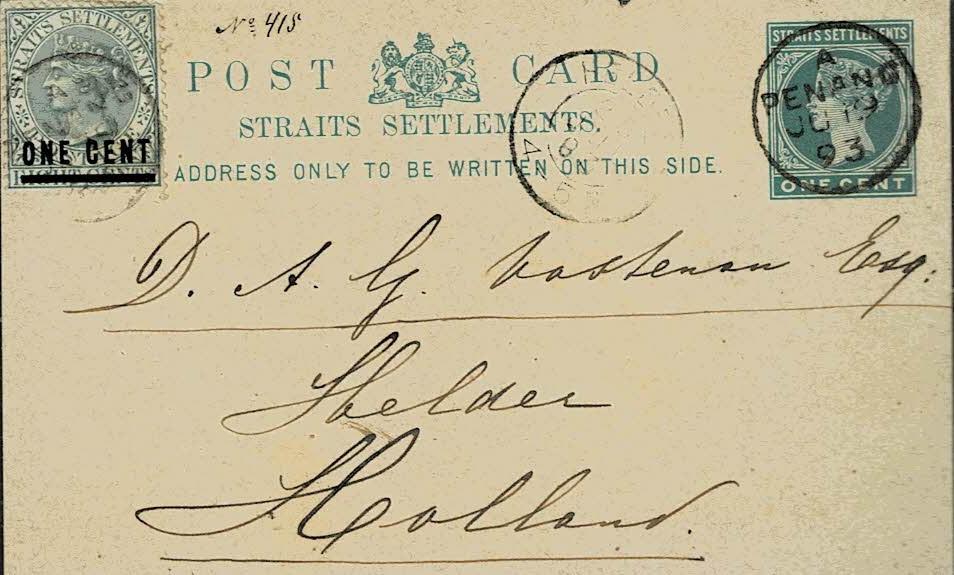 Nº 415
STRAITS SETTLEMENTS
ONE CENT
POST CARD
STRAITS SETTLEMENTS.
ADDRESS ONLY TO BE WRITTEN ON THIS SIDE.
STRAITS SETTLEMENTS
ONE CENT
A
PENANG
93
D. A. G. Vastenou Esq.
Helder
Holland.